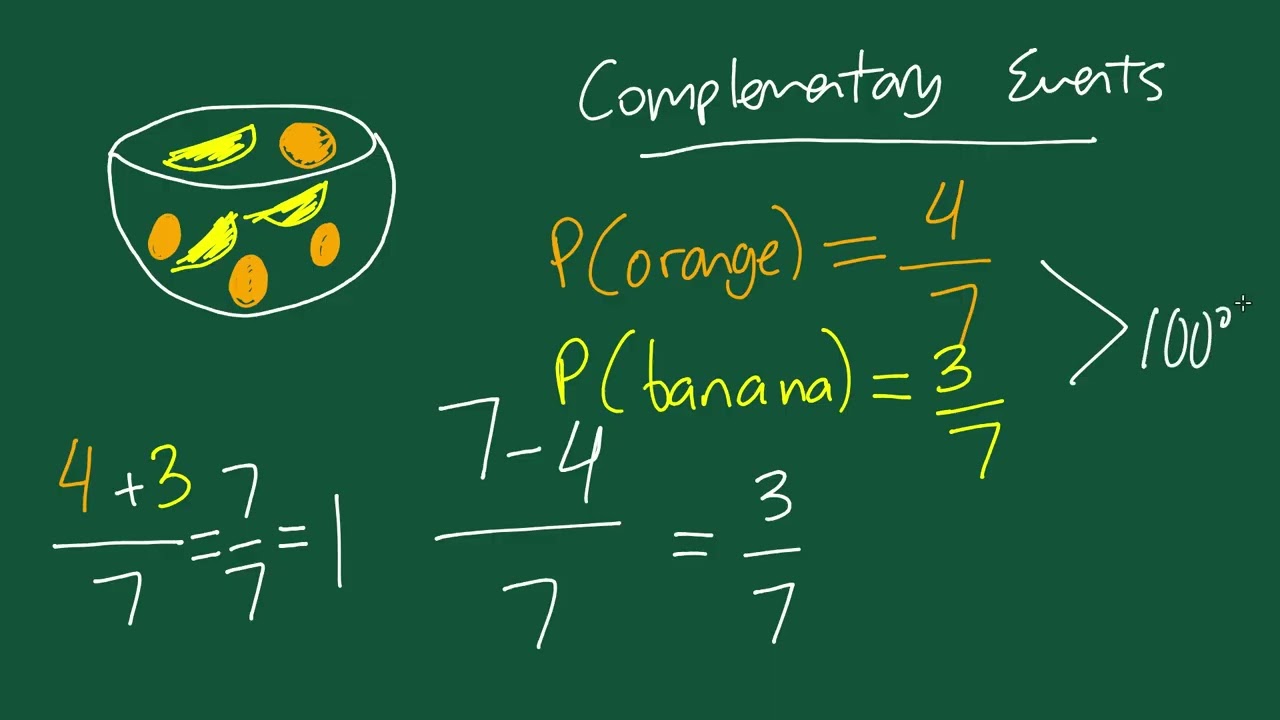 Complementary Events
P(orange) = 4/7
P(banana) = 3/7
100%
4+3/7 = 7/7 = 1
7-4/7 = 3/7